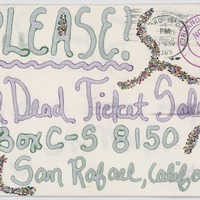 PLEASE!
Dead Ticket Sal
Box C-S 8150
San Rafael, Califo
PM